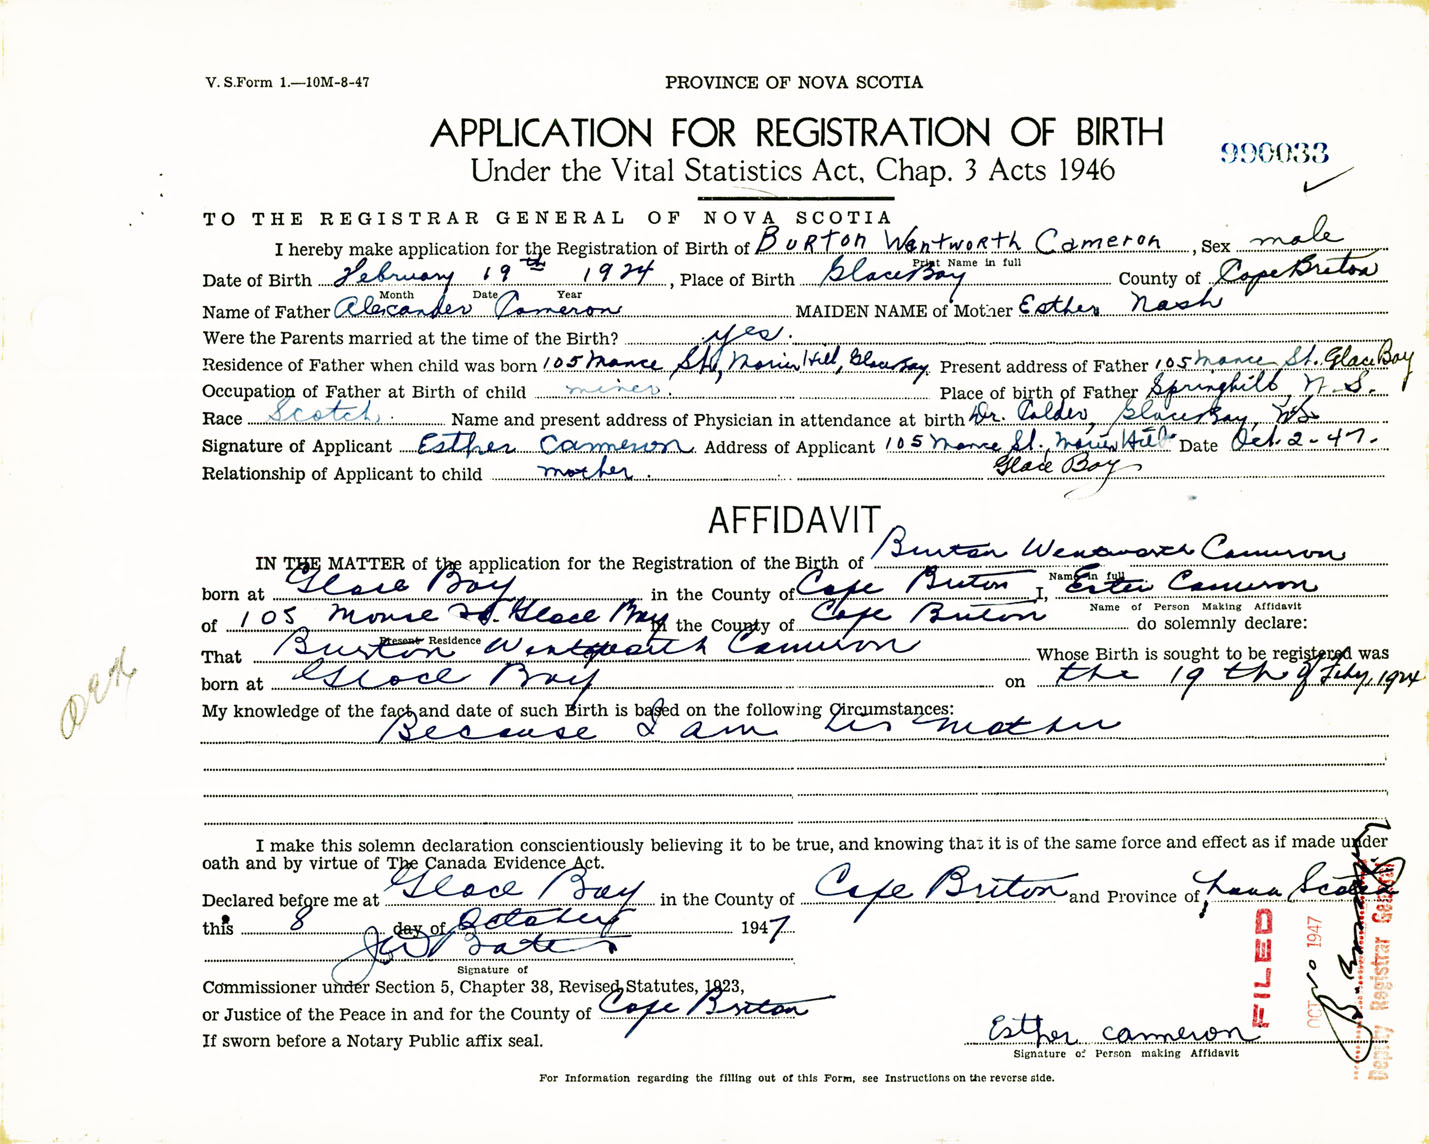 V. S. Form 1.—10M-8-47
PROVINCE OF NOVA SCOTIA
APPLICATION FOR REGISTRATION OF BIRTH
990033
Under the Vital Statistics Act, Chap. 3 Acts 1946
TO THE REGISTRAR GENERAL OF NOVA SCOTIA
I hereby make application for the Registration of Birth of Burton Wentworth Cameron, Sex male
Print Name in full
Date of Birth February 19th 1924, Place of Birth Glace Bay County of Cape Briton
Month Date Year
Name of Father Alexander Cameron MAIDEN NAME of Mother Esther Nash
Were the Parents married at the time of the Birth? yes.
Residence of Father when child was born 105 Mance St., Hill, Glace Bay. Present address of Father 105 Mance St. Glace Bay
Occupation of Father at Birth of child miner. Place of birth of Father Springhill, N. S.
Race Scotch. Name and present address of Physician in attendance at birth Dr. Calder, Glace Bay, NS
Signature of Applicant Esther Cameron Address of Applicant 105 Mance St. Hill Date Oct. 2-47.
Relationship of Applicant to child mother. Glace Bay
AFFIDAVIT
IN THE MATTER of the application for the Registration of the Birth of Burton Wentworth Cameron
Name in full
born at Glace Bay in the County of Cape Briton I, Ester Cameron
Name of Person Making Affidavit
of 105 St. Glace Bay in the County of Cape Briton do solemnly declare:
Present Residence
That Burton Wentworth Cameron Whose Birth is sought to be registered was
born at Glace Bay on the 19 th of Feby, 1924
My knowledge of the fact and date of such Birth is based on the following Circumstances:
Because I am his mother
I make this solemn declaration conscientiously believing it to be true, and knowing that it is of the same force and effect as if made under
oath and by virtue of The Canada Evidence Act.
Declared before me at Glace Bay in the County of Cape Briton and Province of Nova Scotia
this 8 day of October 1947
Signature of
Commissioner under Section 5, Chapter 38, Revised Statutes, 1923,
or Justice of the Peace in and for the County of Cape Briton
If sworn before a Notary Public affix seal.
Esther Cameron
Signature of Person making Affidavit
FILED
OCT 10 1947
Deputy Registrar General
For Information regarding the filling out of this Form, see Instructions on the reverse side.